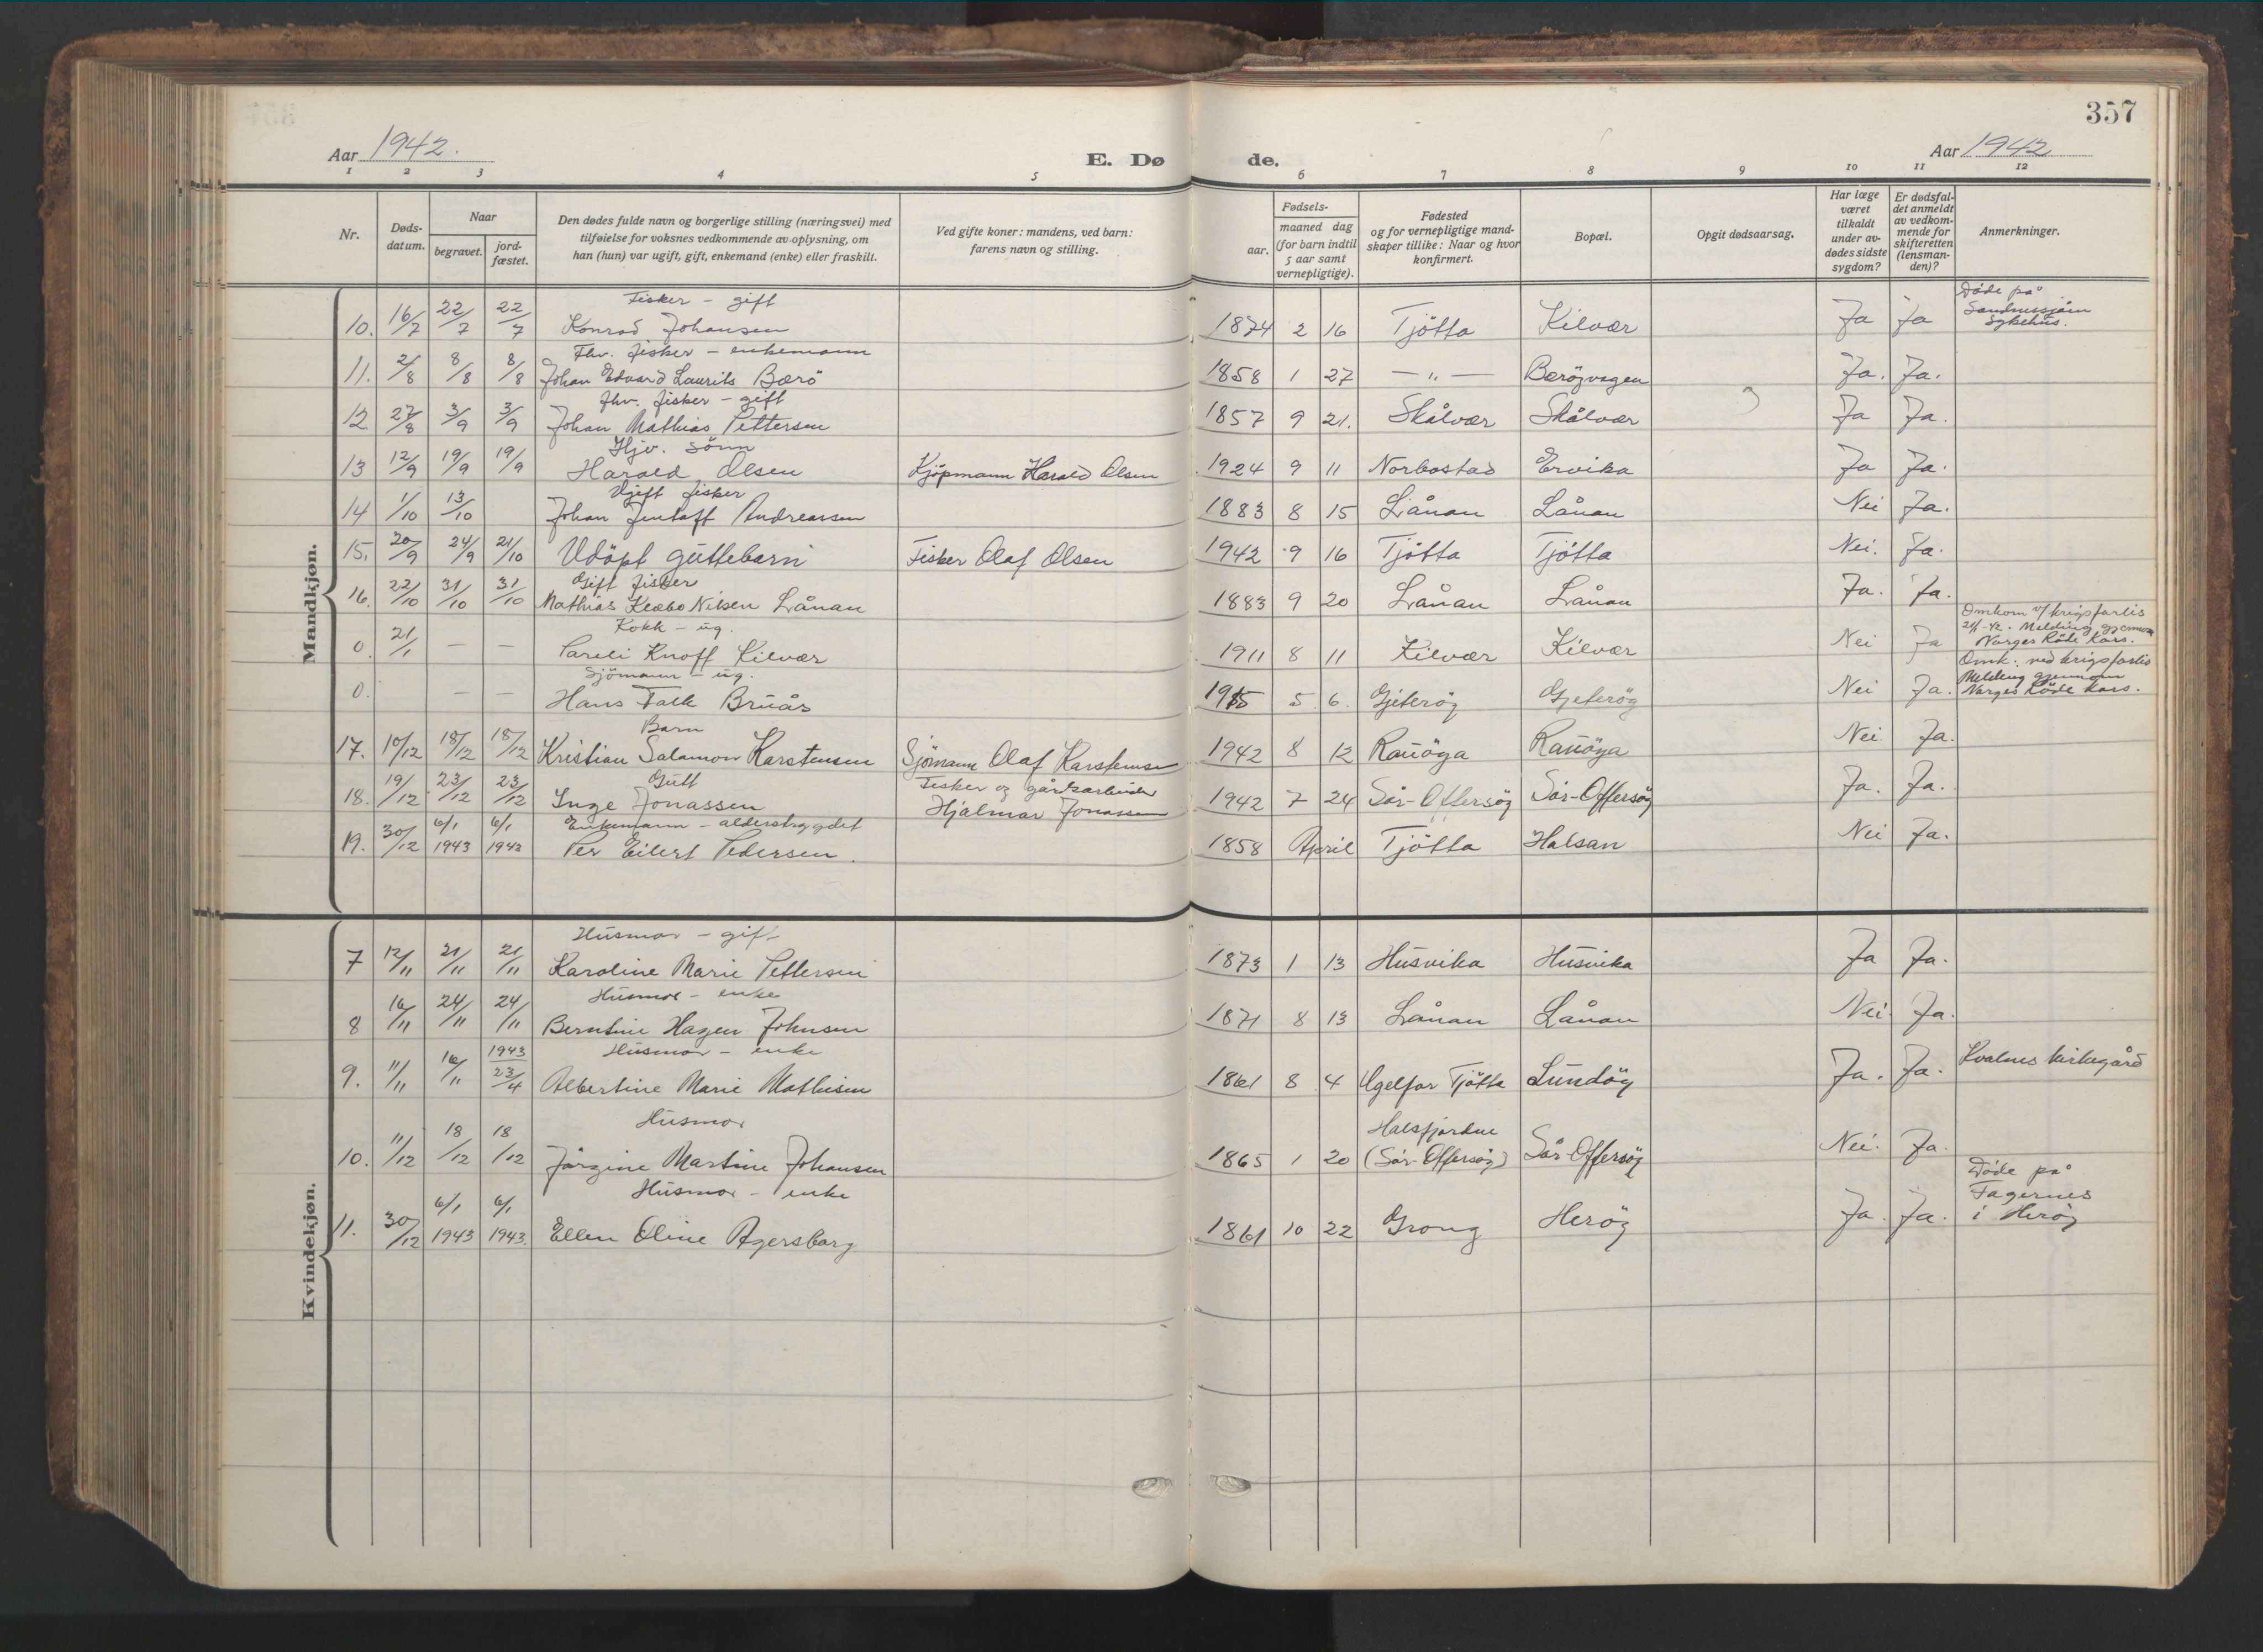 357
Aar 1942.
E. Dø
de.
Aar 1942
1 2 3 4 5 6 7 8 9 10 11 12
Nr.
Døds-
datum.
Naar
begravet.
jord-
fæstet.
Den dødes fulde navn og borgerlige stilling (næringsvei) med
tilføielse for voksnes vedkommende av oplysning, om
han (hun) var ugift, gift, enkemand (enke) eller fraskilt.
Ved gifte koner: mandens, ved barn:
farens navn og stilling.
Fødsels-
aar.
maaned dag
(for barn indtil
5 aar samt
vernepligtige).
Fødested
og for vernepligtige mand-
skaper tillike: Naar og hvor
konfirmert.
Bopæl.
Opgit dødsaarsag.
Har læge
været
tilkaldt
under av-
dødes sidste
sygdom?
Er dødsfal-
det anmeldt
av vedkom-
mende for
skifteretten
(lensman-
den)?
Anmerkninger.
Mandkjøn.
Fisker - gift
10. 16/7 22/7 22/7 Konrad Johansen 1874 2 16 Tjötta Kilvær Ja Ja
Döde på
Sandnessjöen
Sykehus.
Fhv. fisker - enkemann
11. 2/8 8/8 8/8 Johan Edvard Laurits Bærö 1858 1 27 — " — Bæröyvagen Ja. Ja.
fhv. fisker - gift
12 27/8 3/9 3/9 Johan Mathias Pettersen 1857 9 21. Skålvær Skålvær Ja Ja.
Hjv. sönn
13 12/9 19/9 19/9 Harald Olsen Kjöpmann Harald Olsen 1924 9 11 Norbostad Ervika Ja Ja.
Ugift fisker
14 1/10 13/10 Johan Jentoft Andreassen 1883 8 15 Lånan Lånan Nei Ja.
15. 20/9 24/9 21/10 Udöpt guttebarn Fisker Olaf Olsen 1942 9 16 Tjötta Tjötta Nei. Ja.
Gift fisker
16. 22/10 31/10 31/10 Mathias Klæbo Nilsen Lånan 1883 9 20 Lånan Lånan Ja. Ja.
Kokk - ug.
0. 21/1 — — Pareli Knoff Kilvær 1911 8 11 Kilvær Kilvær Nei Ja
Omkom v/ krigsforlis
21/1-42. Melding gjennom
Norges Röde Kors.
Sjömann - ug.
0. — — Hans Falk Bruås 1915 5. 6. Gjeteröy Gjeteröy Nei Ja.
Omk. ved krigsforlis
Melding gjennom
Norges Röde Kors.
Barn
17. 10/12 18/12 18/12 Kristian Salamon Karstensen Sjömann Olaf Karstensen 1942 8 12 Rauöya Rauöya Nei. Ja.
Gutt
18. 19/12 23/12 23/12 Inge Jonassen
Fisker og gårdsarbeider
Hjalmar Jonassen
1942 7 24 Sör-Offersöy Sör-Offersöy Ja. Ja.
Enkemann - alderstrygdet
19. 30/12 6/1 1943 6/1 1943 Per Eilert Pedersen. 1858 April Tjötta Halsan Nei Ja.
Kvindekjøn.
Husmor - gift
7 12/11 21/11 21/11 Karoline Marie Pettersen 1873 1 13 Husvika Husvika Ja Ja.
Husmor - enke
8 16/11 24/11 24/11 Berntine Hagen Johnsen 1871 8 13 Lånan Lånan Nei. Ja.
Husmor - enke
9. 11/11 16/11 1943 23/4 Albertine Marie Mathisen 1861 8 4 Igelfor Tjötta Lundöy Ja. Ja. Kvalnes kirkegård
Husmor
10. 11/12 18/12 18/12 Jörgine Martine Johansen 1865 1 20
Halsfjorden
(Sör-Offersöy) Sör-Offersöy Nei. Ja.
Husmor - enke
11. 30/12 6/1 1943 6/1 1943. Ellen Oline Agersborg 1861 10 22 Grong Heröy Ja. Ja.
Döde på
Fagernes
i Heröy